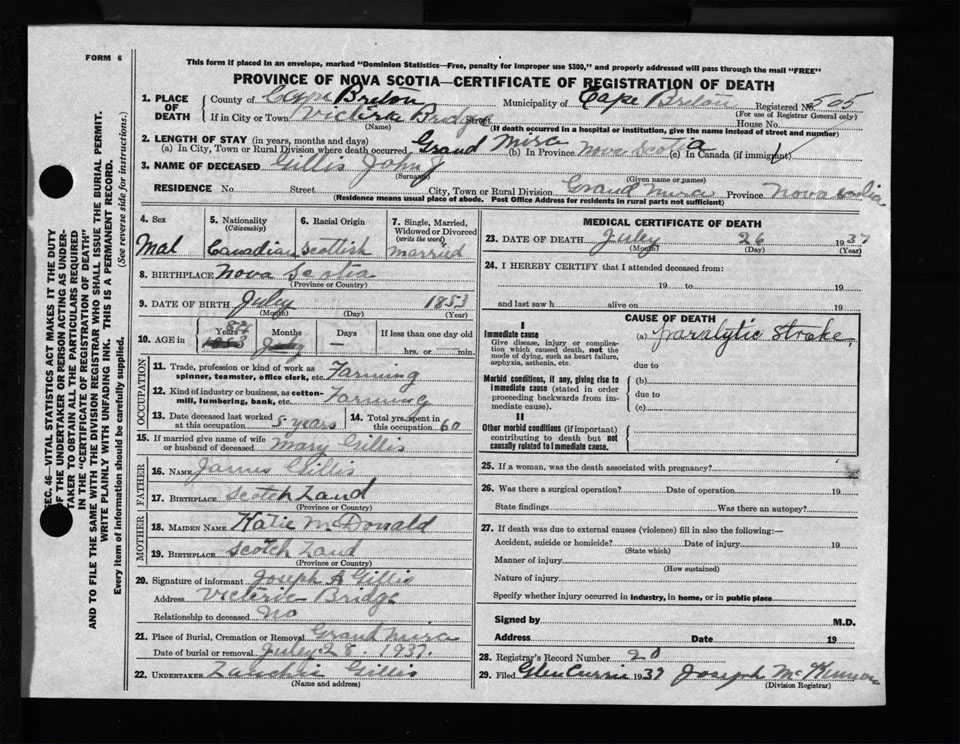 FORM 6
This form if placed in an envelope, marked "Dominion Statistics—Free, penalty for improper use $300," and properly addressed will pass through the mail "FREE"
PROVINCE OF NOVA SCOTIA—CERTIFICATE OF REGISTRATION OF DEATH
1. PLACE OF DEATH
County of Cape Breton Municipality of Cape Breton Registered No 505
(For use of Registrar General only)
If in City or Town Victeria Bridge Street House No.
(Name) (If death occurred in a hospital or institution, give the name instead of street and number)
2. LENGTH OF STAY (in years, months and days)
(a) In City, Town or Rural Division where death occurred Grand Mira (b) In Province Nova Scotia (c) In Canada (if immigrant)
3. NAME OF DECEASED Gillis John J
(Surname) (Given name or names)
RESIDENCE No Street City, Town or Rural Division Grand Mira Province Nova Scotia
(Residence means usual place of abode. Post Office Address for residents in rural parts not sufficient)
4. Sex
Mal
5. Nationality (Citizenship)
Canadian
6. Racial Origin
Scottish
7. Single, Married, Widowed or Divorced (write the word)
Married
8. BIRTHPLACE Nova Scotia
(Province or Country)
9. DATE OF BIRTH July 1853
(Month) (Day) (Year)
10. AGE in
Years Months Days If less than one day old
84
1853 July — hrs. or min.
OCCUPATION
11. Trade, profession or kind of work as spinner, teamster, office clerk, etc. Farming
12. Kind of industry or business, as cotton-mill, lumbering, bank, etc. Farming
13. Date deceased last worked at this occupation 5 years 14. Total yrs. spent in this occupation 60
15. If married give name of wife or husband of deceased Mary Gillis
FATHER
16. NAME James Gillis
17. BIRTHPLACE Scotch Land
(Province or Country)
MOTHER
18. MAIDEN NAME Katie McDonald
19. BIRTHPLACE Scotch Land
(Province or Country)
20. Signature of informant Joseph A Gillis
Address Victeria Bridge
Relationship to deceased No
21. Place of Burial, Cremation or Removal Grand Mira
Date of burial or removal July 28. 1937.
22. UNDERTAKER Gillis
(Name and address)
MEDICAL CERTIFICATE OF DEATH
23. DATE OF DEATH July 26 1937
(Month) (Day) (Year)
24. I HEREBY CERTIFY that I attended deceased from:
19 to 19
and last saw h alive on 19
CAUSE OF DEATH
I
Immediate cause
Give disease, injury or complication which caused death, not the mode of dying, such as heart failure, asphyxia, asthenia, etc.
(a) Paralytic Stroke
due to
Morbid conditions, if any, giving rise to immediate cause (stated in order proceeding backwards from immediate cause).
(b)
due to
(c)
II
Other morbid conditions (if important) contributing to death but not causally related to immediate cause.
25. If a woman, was the death associated with pregnancy?
26. Was there a surgical operation? Date of operation 19
State findings Was there an autopsy?
27. If death was due to external causes (violence) fill in also the following:—
Accident, suicide or homicide? Date of injury 19
(State which)
Manner of injury
(How sustained)
Nature of injury
Specify whether injury occurred in industry, in home, or in public place
Signed by M.D.
Address Date 19
28. Registrar's Record Number 20
29. Filed Glen Currie 1937 Joseph
(Division Registrar)
SEC. 46—VITAL STATISTICS ACT MAKES IT THE DUTY
OF THE UNDERTAKER OR PERSON ACTING AS UNDER-
TAKER TO OBTAIN ALL THE PARTICULARS REQUIRED
IN THE "CERTIFICATE OF REGISTRATION OF DEATH"
AND TO FILE THE SAME WITH THE DIVISION REGISTRAR WHO SHALL ISSUE THE BURIAL PERMIT.
WRITE PLAINLY WITH UNFADING INK. THIS IS A PERMANENT RECORD.
Every item of information should be carefully supplied. (See reverse side for instructions.)